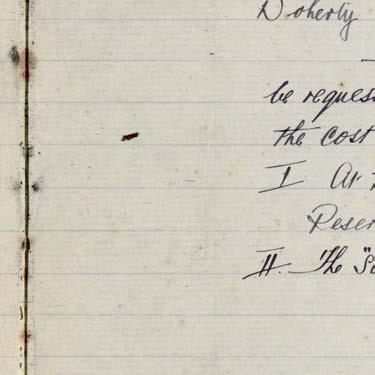 Doherty
be reques
the cost
I At
Reser
II. The "S